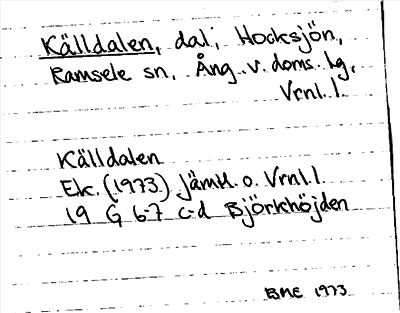 Källdalen, dal, Hocksjön,
Ramsele sn, Ång. v. doms. lg,
Vrnl. l.
Källdalen
Ek. (1973) Jämtl. o. Vrnl. l.
19 G 6-7 c-d Björkhöjden
BME 1973